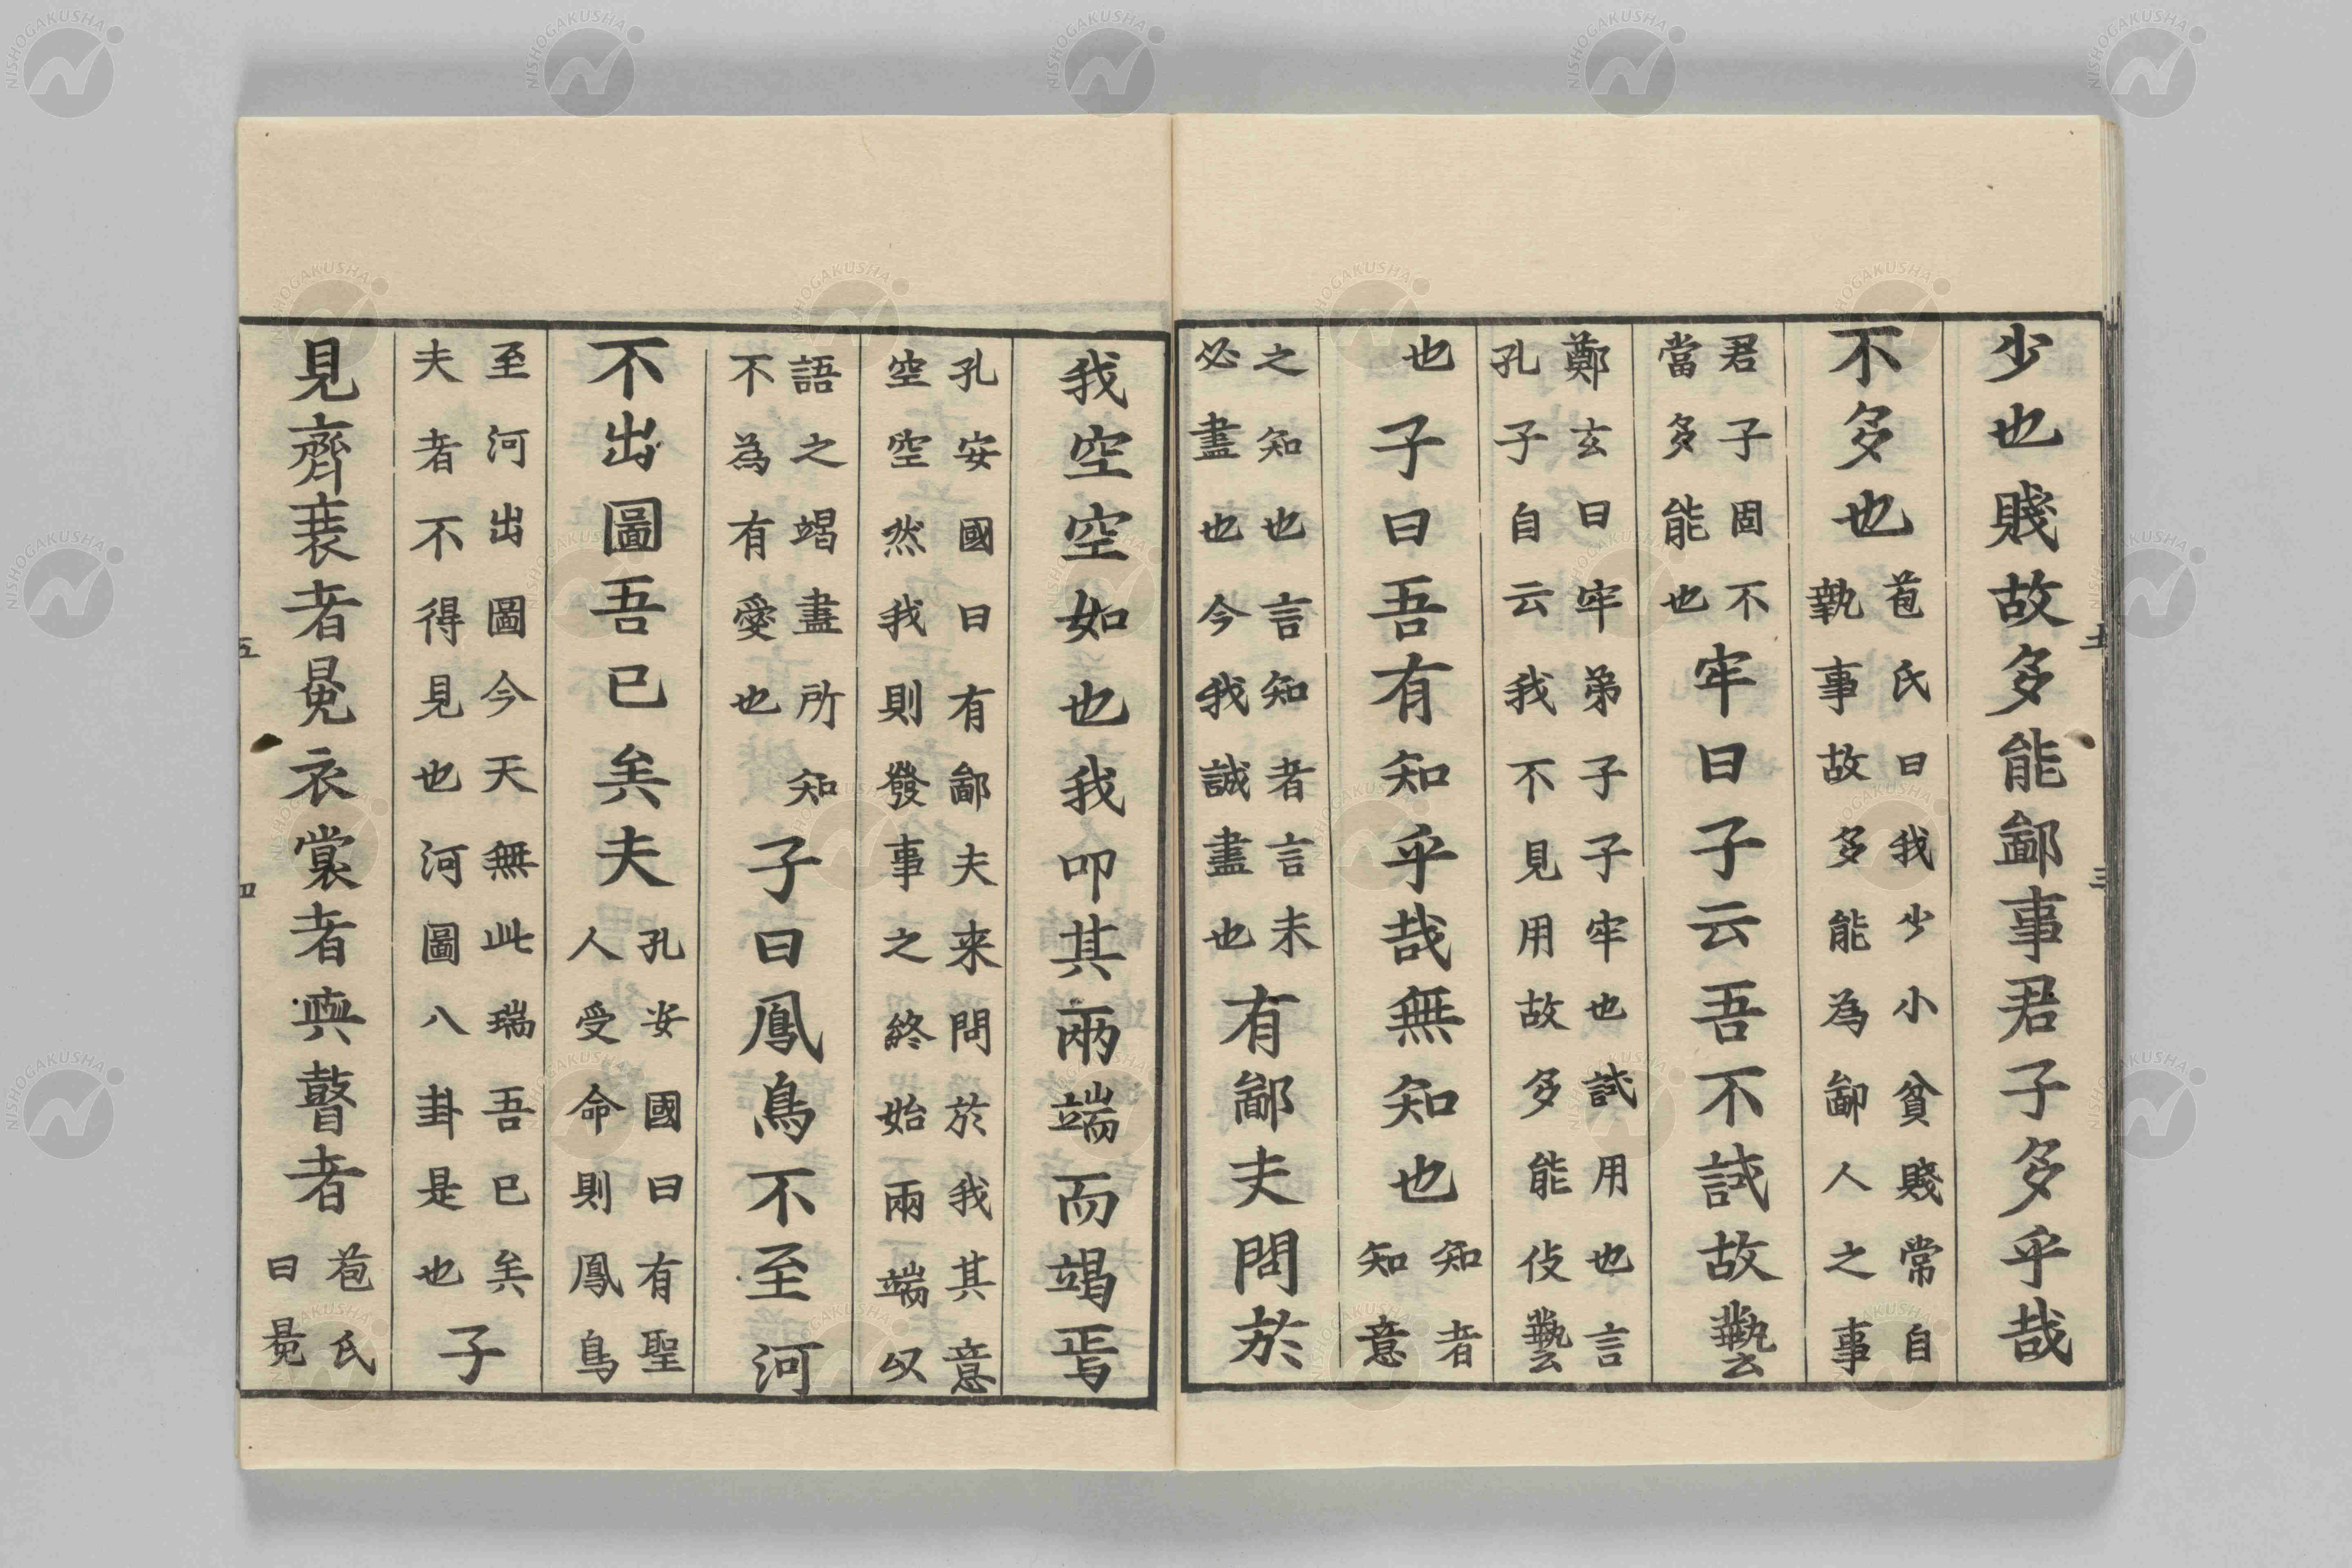 少也賤故多能鄙事君子多乎哉
不多也苞氏曰我少小貧賤常自執事故多能為鄙人之事
君子固不當多能也牢曰子云吾不試故藝
鄭玄曰牢弟子子牢也試用也言孔子自云我不見用故多能伎藝
也子曰吾有知乎哉無知也知者知意
之知也言知者言未必盡也今我誠盡也有鄙夫問於
我空空如也我叩其兩端而竭焉
孔安國曰有鄙夫来問於我其意空空然我則發事之終始兩端以
語之竭盡所知不為有愛也子曰鳳鳥不至河
不出圖吾已矣夫孔安國曰有聖人受命則鳳鳥
至河出圖今天無此瑞吾已矣夫者不得見也河圖八卦是也子
見齊衰者冕衣裳者與瞽者苞氏曰冕
NISHOGAKUSHA